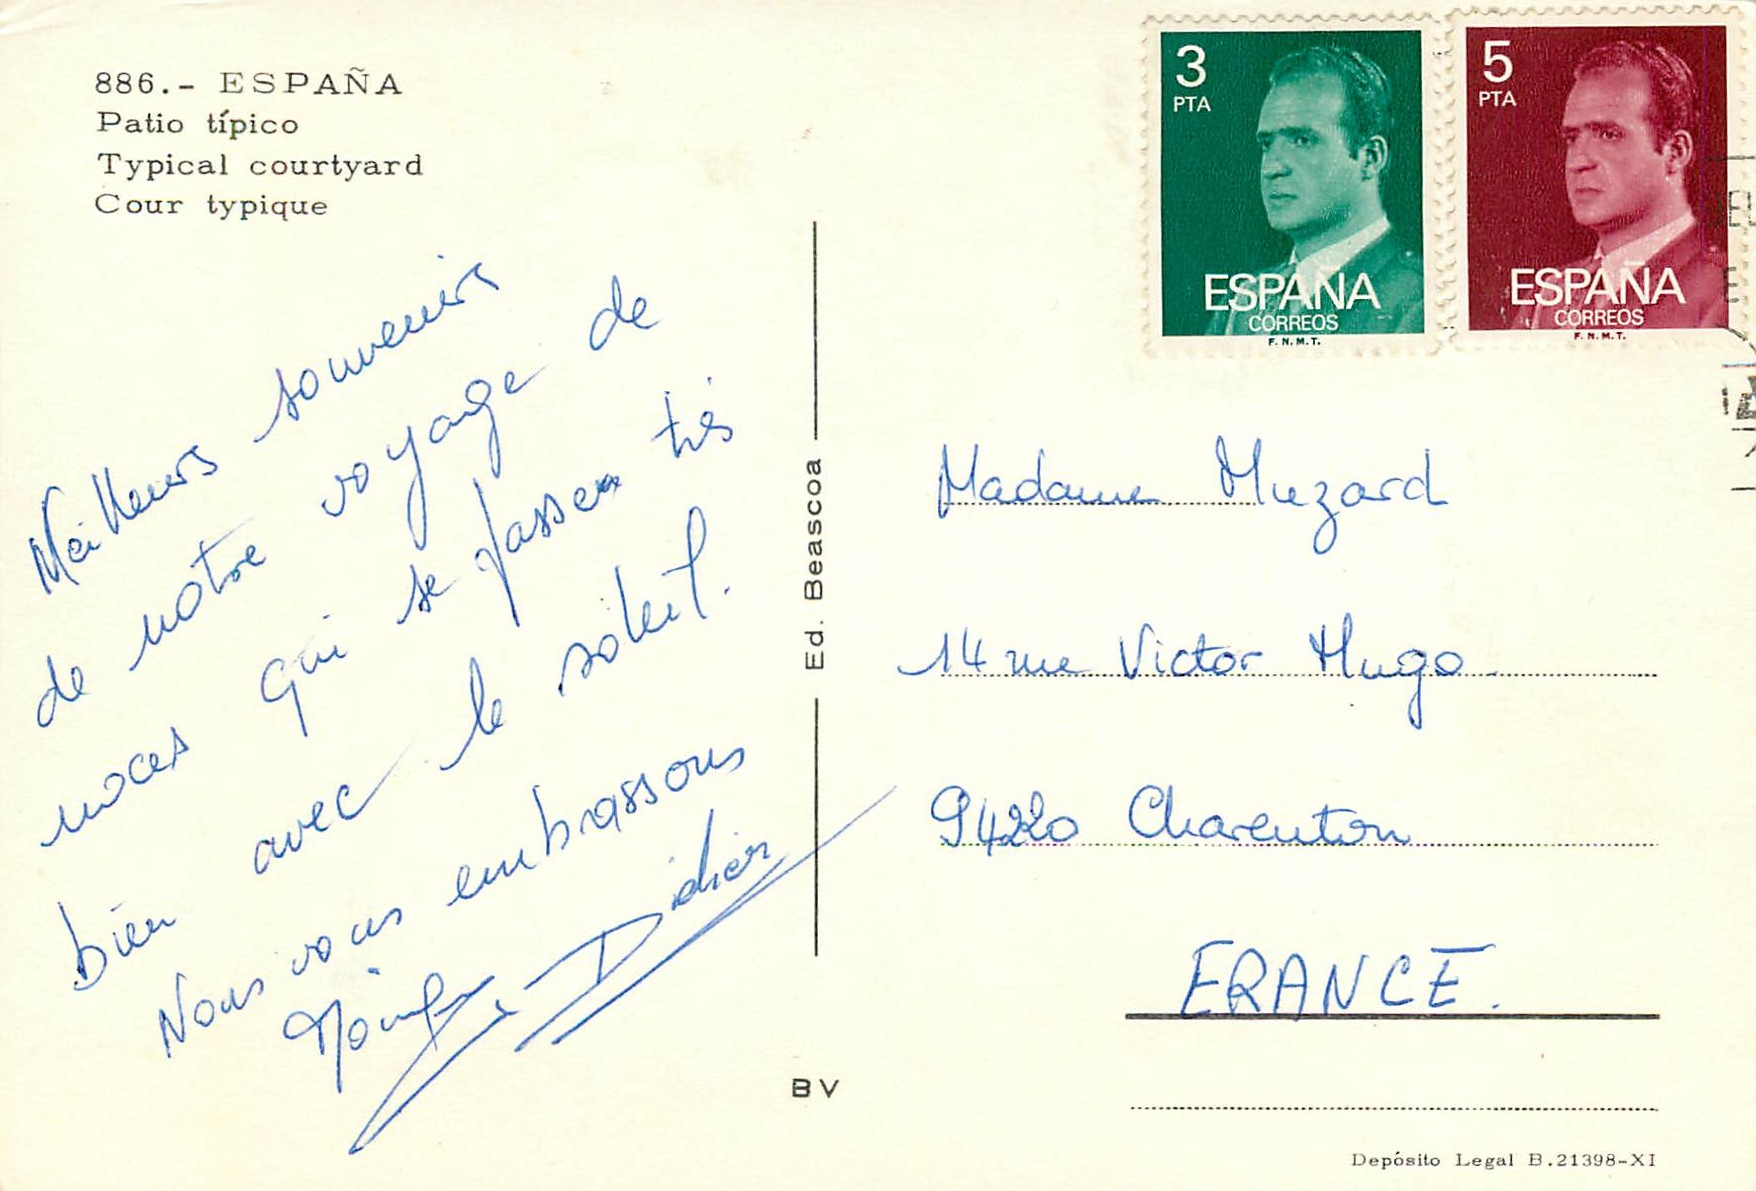 886.- ESPAÑA
Patio típico
Typical courtyard
Cour typique
Meilleurs souvenirs
de notre voyage de
noces qui se passe très
bien avec le soleil.
Nous vous embrassons
Didier
Ed. Beascoa
BV
3
PTA
ESPAÑA
CORREOS
F.N.M.T.
5
PTA
ESPAÑA
CORREOS
F.N.M.T.
Madame Muzard
14 rue Victor Hugo
94220 Charenton
FRANCE.
Depósito Legal B.21398-XI